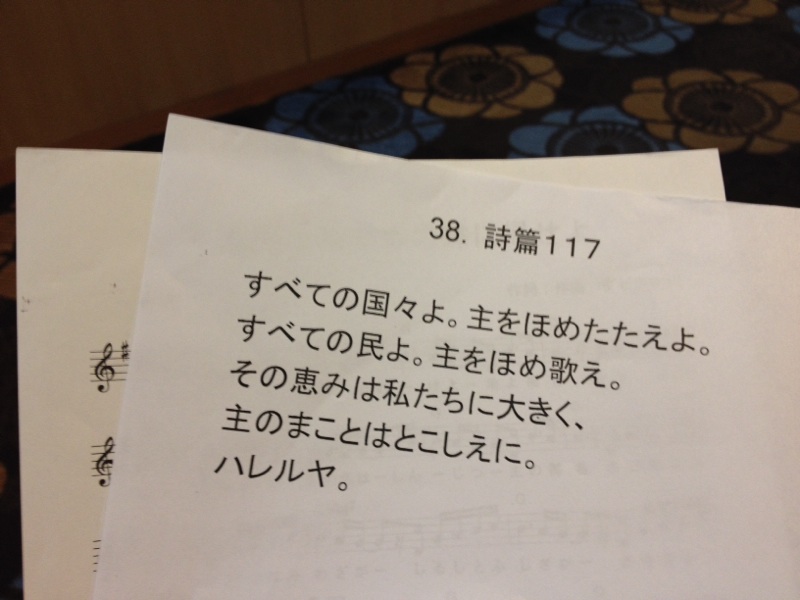 38. 詩篇117
すべての国々よ。主をほめたたえよ。
すべての民よ。主をほめ歌え。
その恵みは私たちに大きく、
主のまことはとこしえに。
ハレルヤ。